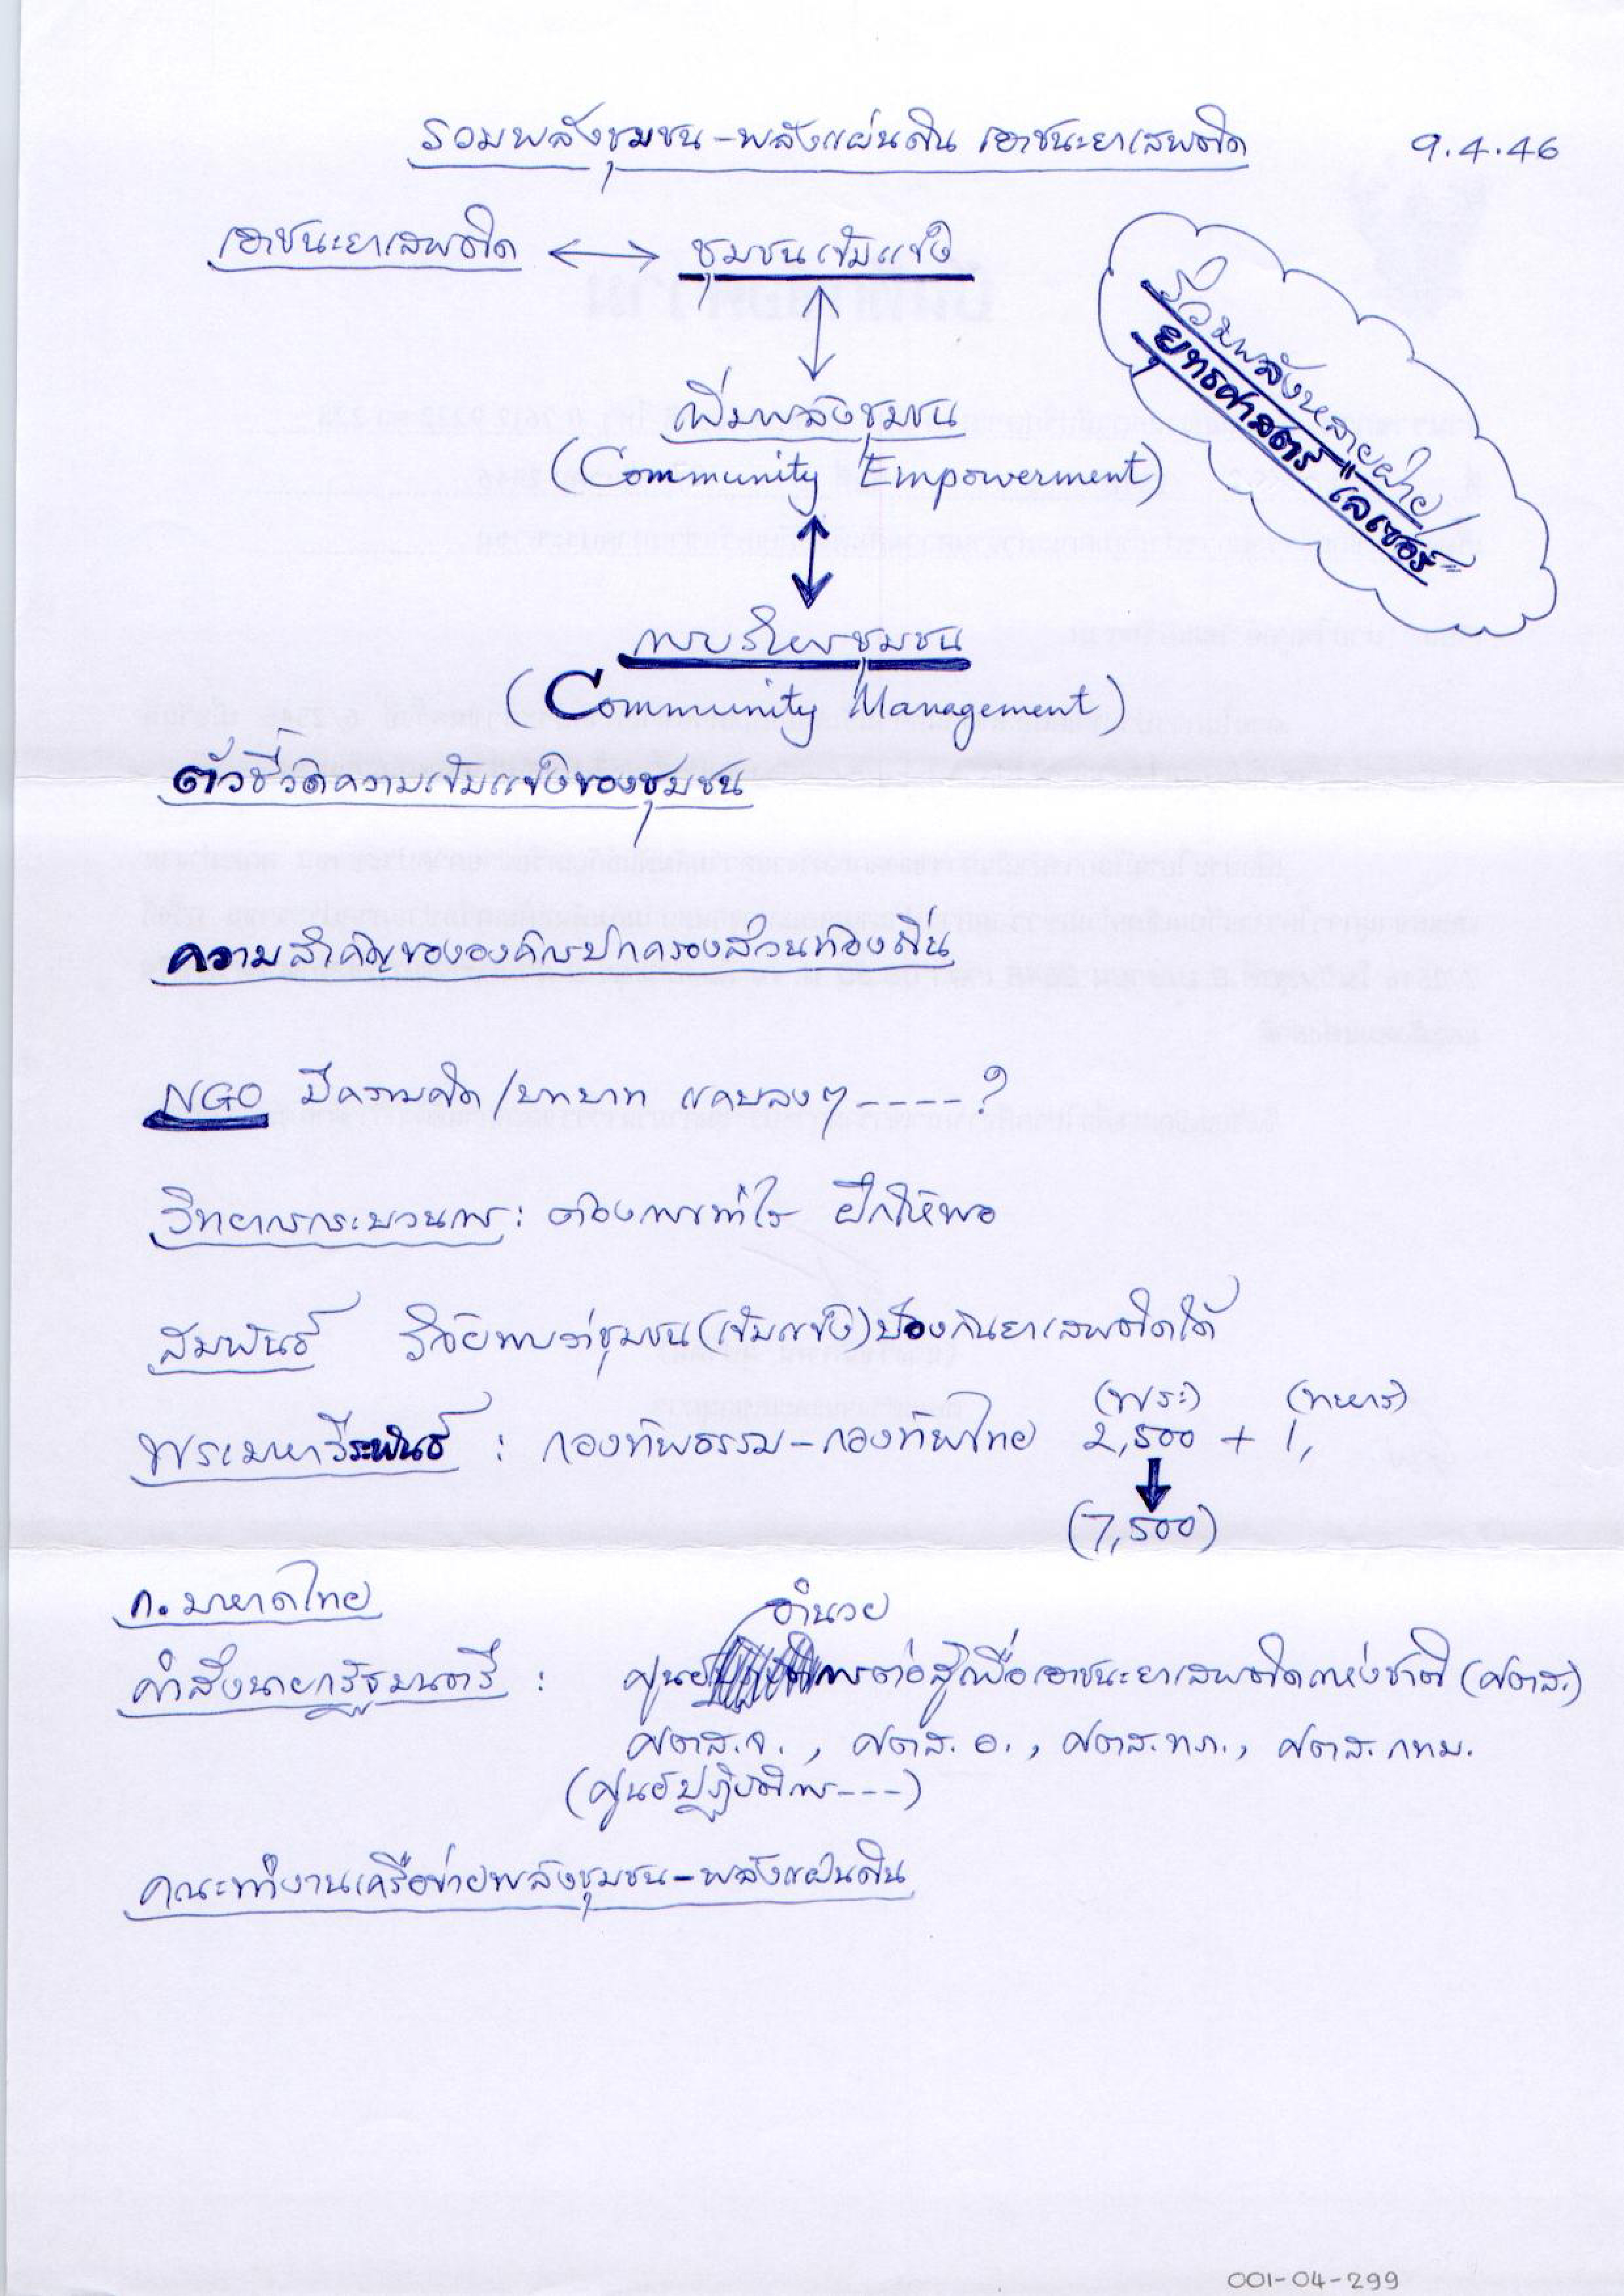 รวมพลังชุมชน-พลังแผ่นดิน เอาชนะยาเสพติด
9.4.46
เอาชนะยาเสพติด ⟷ ชุมชนเข้มแข็ง
ร่วมพลังหลายฝ่าย
ยุทธศาสตร์ "เลเซอร์"
เพิ่มพลังชุมชน
(Community Empowerment)
การบริหารชุมชน
(Community Management)
ตัวชี้วัดความเข้มแข็งของชุมชน
ความสำคัญขององค์กรปกครองส่วนท้องถิ่น
NGO มีความคิด/บทบาท แคบลงๆ ----?
วิทยากรกระบวนการ : ต้องการเท่าไร ฝึกให้พอ
สัมพันธ์ วิจัยพบว่าชุมชน(เข้มแข็ง)ป้องกันยาเสพติดได้
(พระ) (ทหาร)
พระมหาวีระพันธ์ : กองทัพธรรม-กองทัพไทย 2,500 + 1,
(7,500)
ก.มหาดไทย
อำนวย
คำสั่งนายกรัฐมนตรี : ศูนย์การต่อสู้เพื่อเอาชนะยาเสพติดแห่งชาติ (ศตส.)
ศตส.จ., ศตส.อ., ศตส.ทภ., ศตส.กทม.
(ศูนย์ปฏิบัติการ---)
คณะทำงานเครือข่ายพลังชุมชน-พลังแผ่นดิน
001-04-299